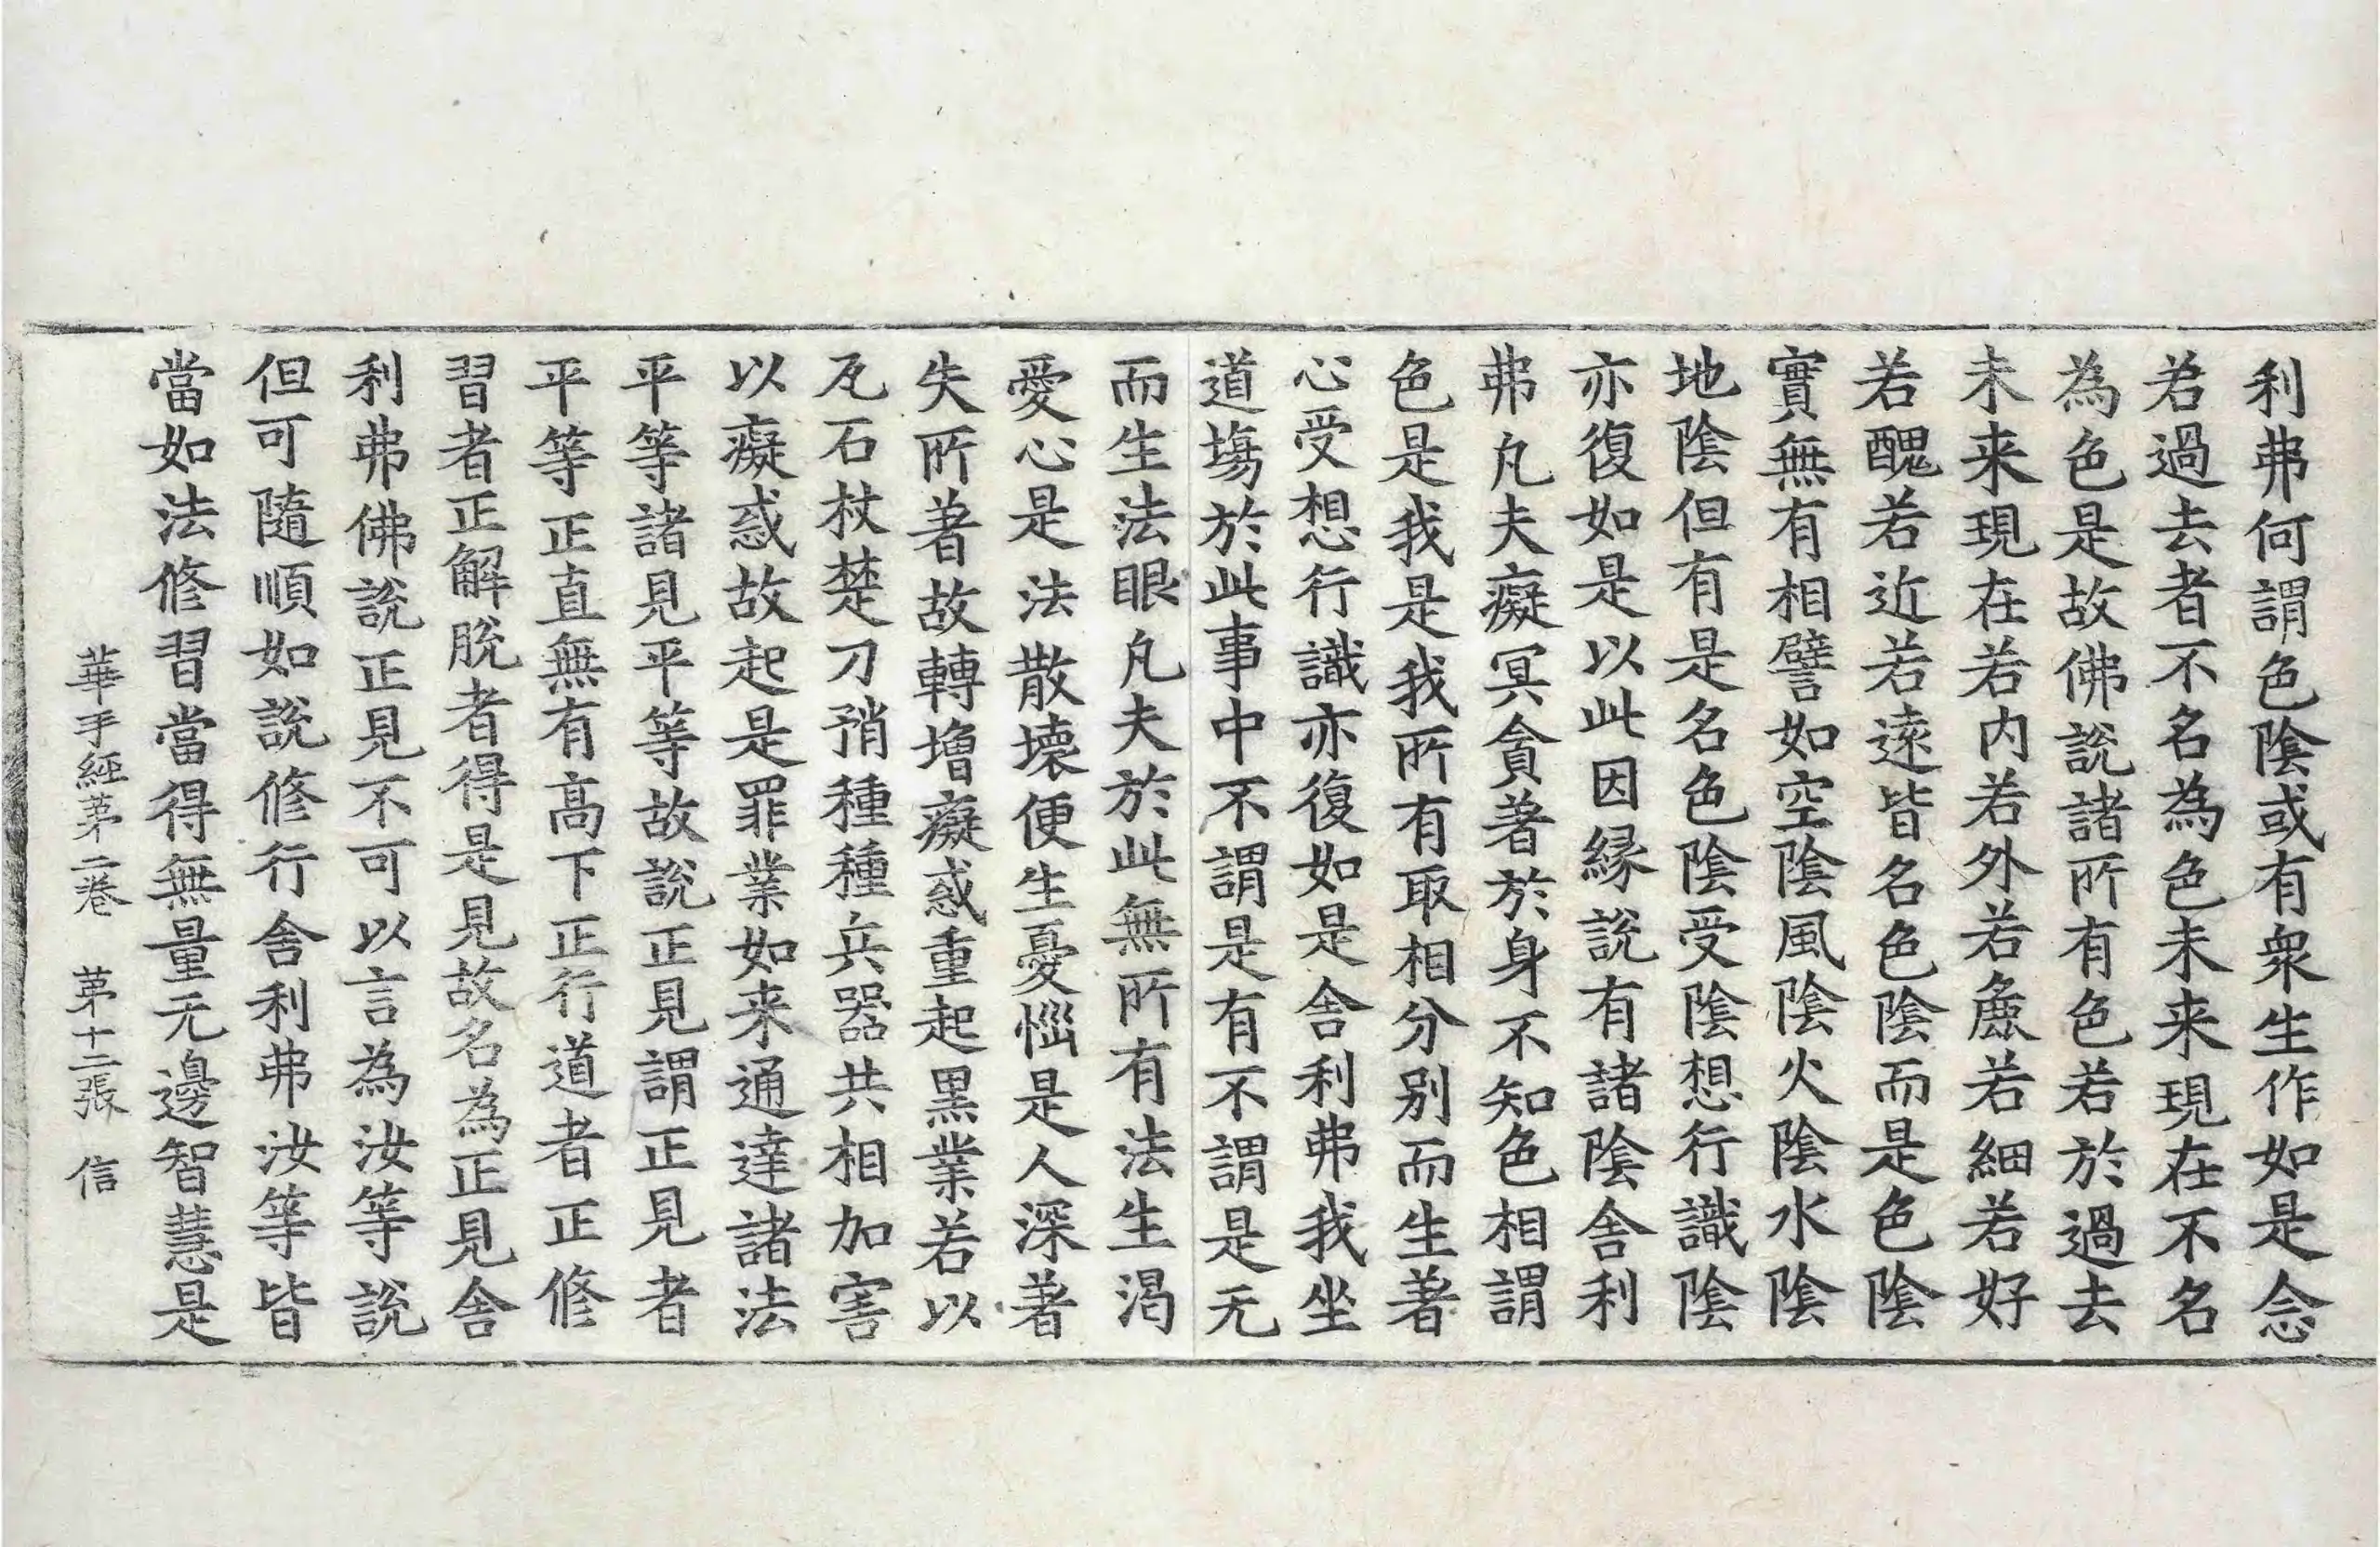 利弗何謂色陰或有衆生作如是念
若過去者不名為色未来現在不名
為色是故佛說諸所有色若於過去
未来現在若内若外若麁若細若好
若醜若近若遠皆名色陰而是色陰
實無有相譬如空陰風陰火陰水陰
地陰但有是名色陰受陰想行識陰
亦復如是以此因緣說有諸陰舍利
弗凡夫癡冥貪著於身不知色相謂
色是我是我所有取相分別而生著
心受想行識亦復如是舍利弗我坐
道場於此事中不謂是有不謂是无
而生法眼凡夫於此無所有法生渴
愛心是法散壞便生憂惱是人深著
失所著故轉增癡惑重起黒業若以
瓦石杖楚刀矟種種兵器共相加害
以癡惑故起是罪業如来通達諸法
平等諸見平等故說正見謂正見者
平等正直無有高下正行道者正修
習者正解脫者得是見故名為正見舍
利弗佛說正見不可以言為汝等說
但可隨順如說修行舍利弗汝等皆
當如法修習當得無量无邊智慧是
華手經苐二卷　苐十二張　信